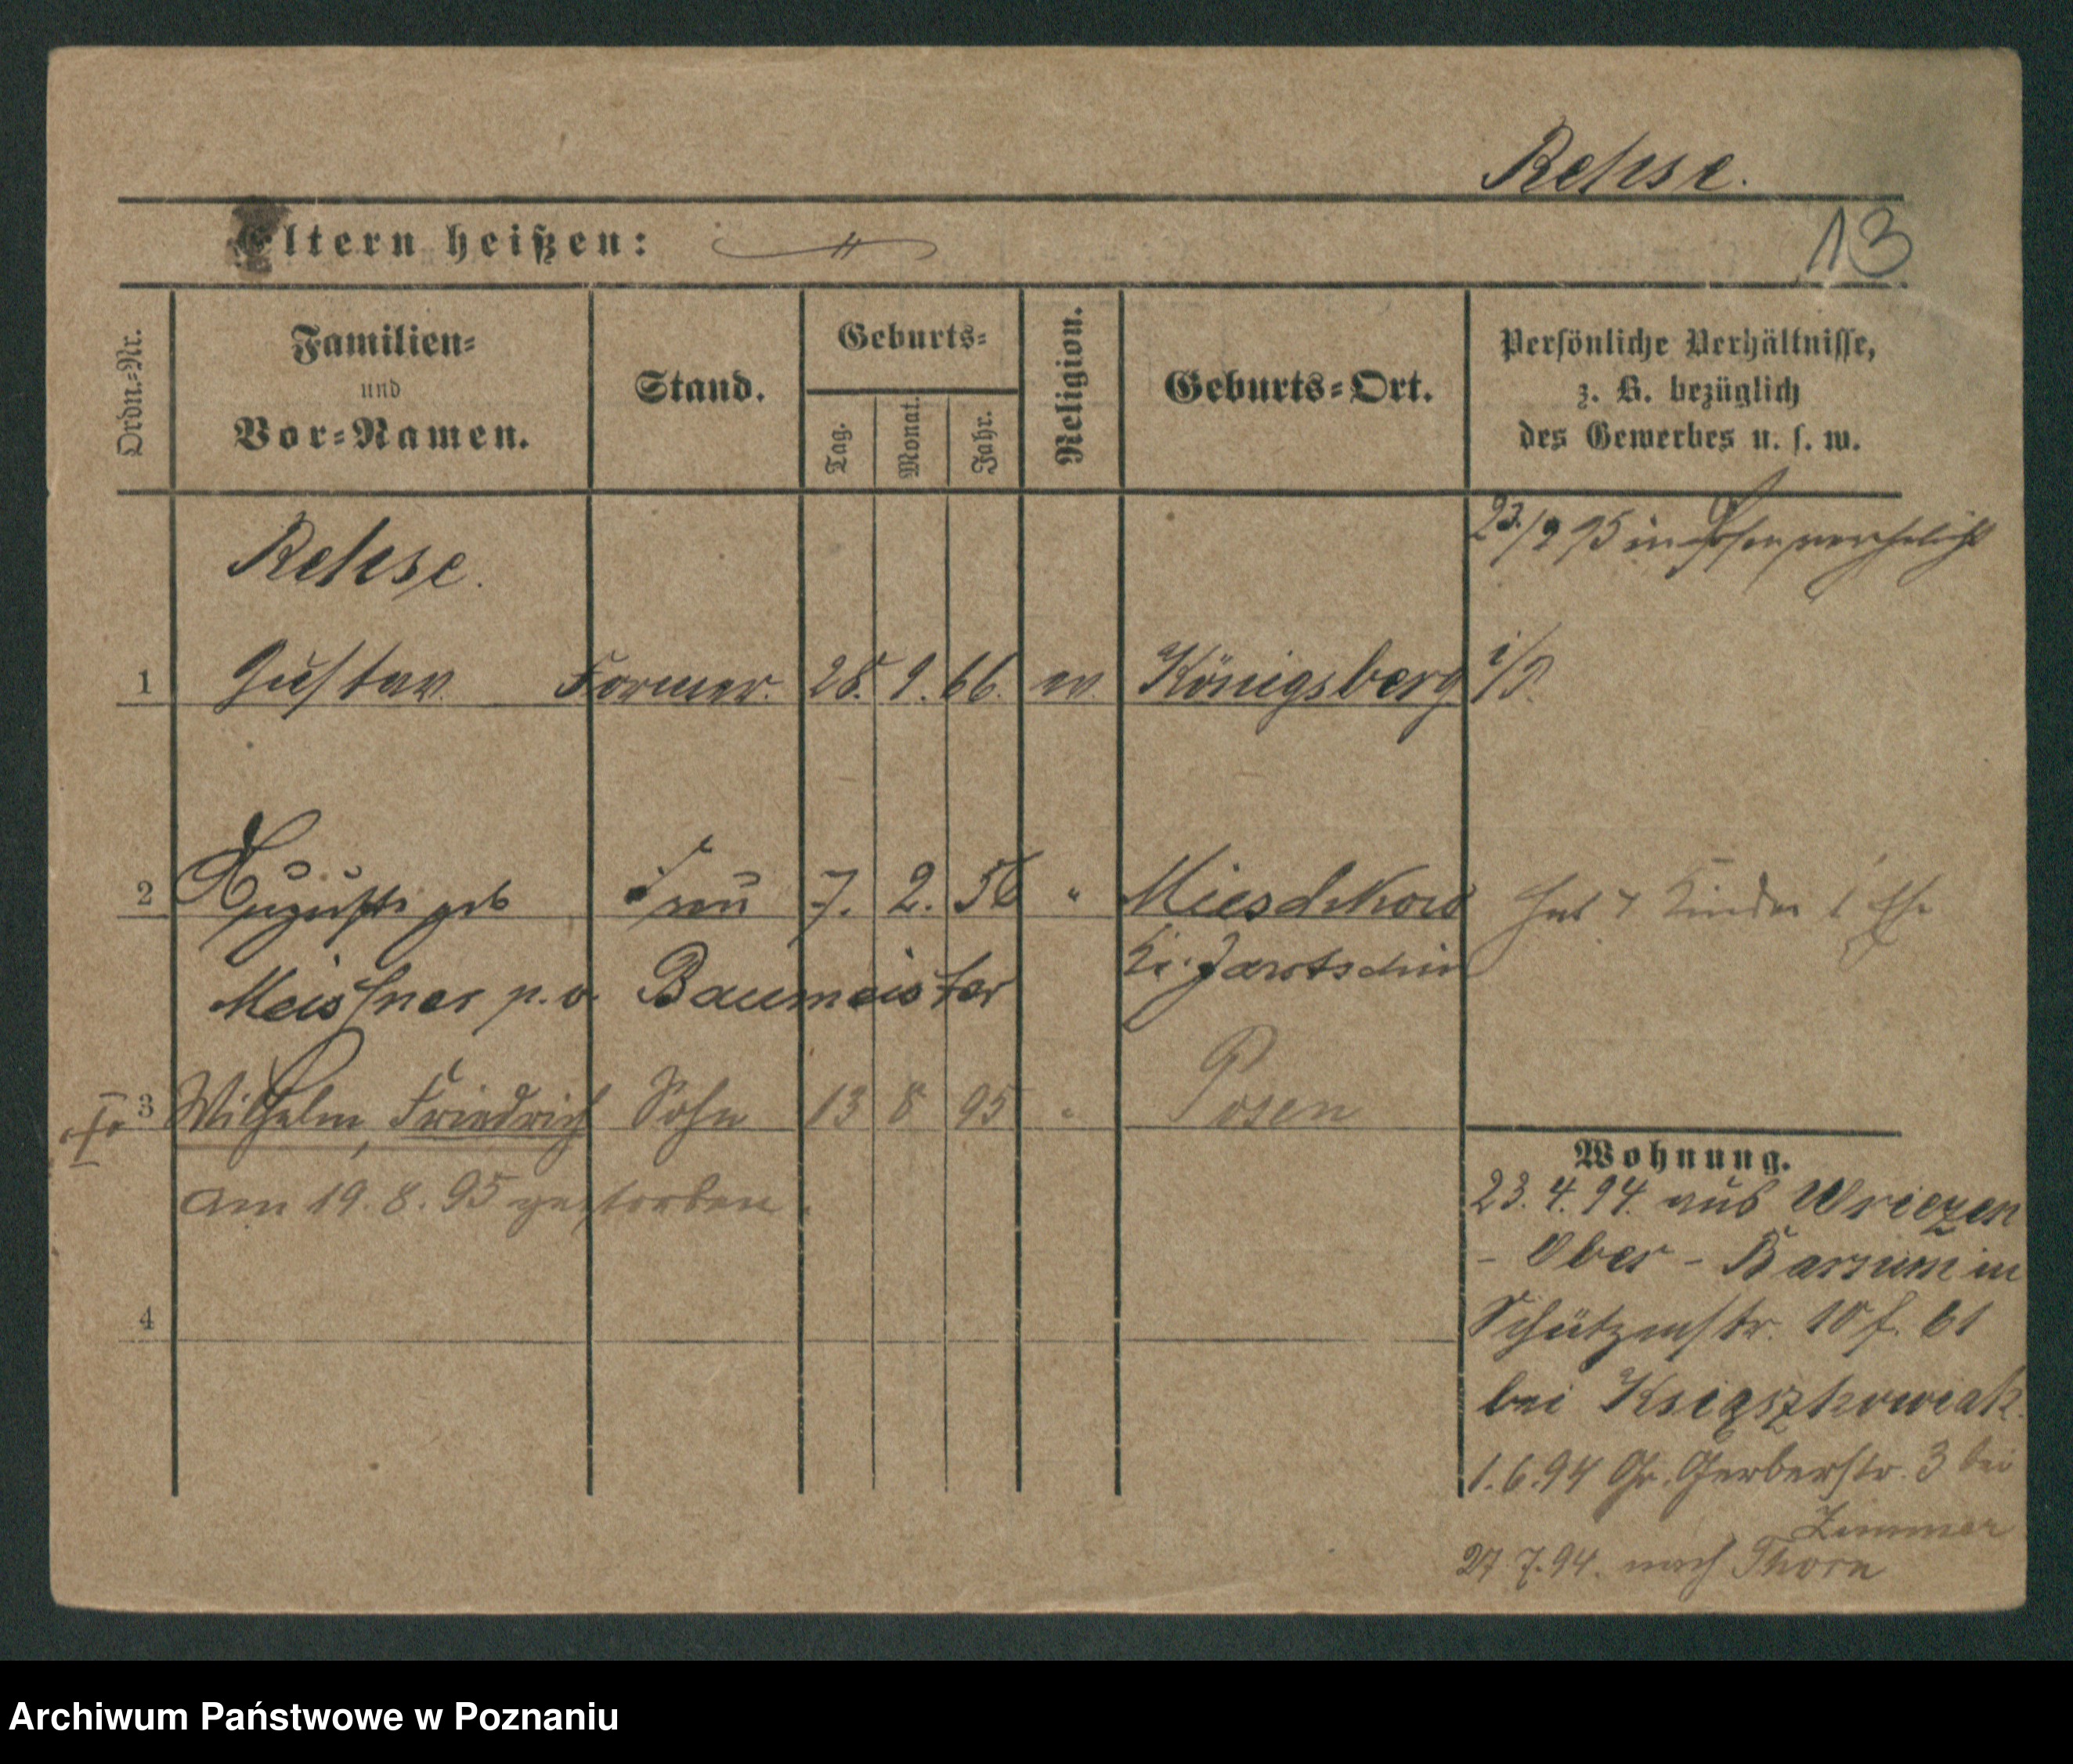 Rehse.
Eltern heißen:
13
Ordn.-Nr.
Familien-
und
Vor-Namen.
Stand.
Geburts-
Tag.
Monat.
Jahr.
Religion.
Geburts-Ort.
Persönliche Verhältnisse,
z. B. bezüglich
des Gewerbes u. s. w.
Rehse.
95 in Posen verehelicht
1 Gustav Former. 28. 9. 66. ev. Königsberg
2 Auguste geb Frau 7. 2. 56 " Mieschkow
Hat Kinder
Meissner p. v. Baumeister
Kr. Jarotschin
3 Wilhelm, Friedrich Sohn 13 8 95 " Posen
am 19. 8. 95 gestorben.
4
Wohnung.
23. 4. 94. aus Wriezen
- Ober - Barnim in
Schützenstr. 10 f. 61
bei Księszkowiak.
1.6.94 Gr. Gerberstr. 3 bei
Zimmer
27. 7. 94. nach Thorn
Archiwum Państwowe w Poznaniu